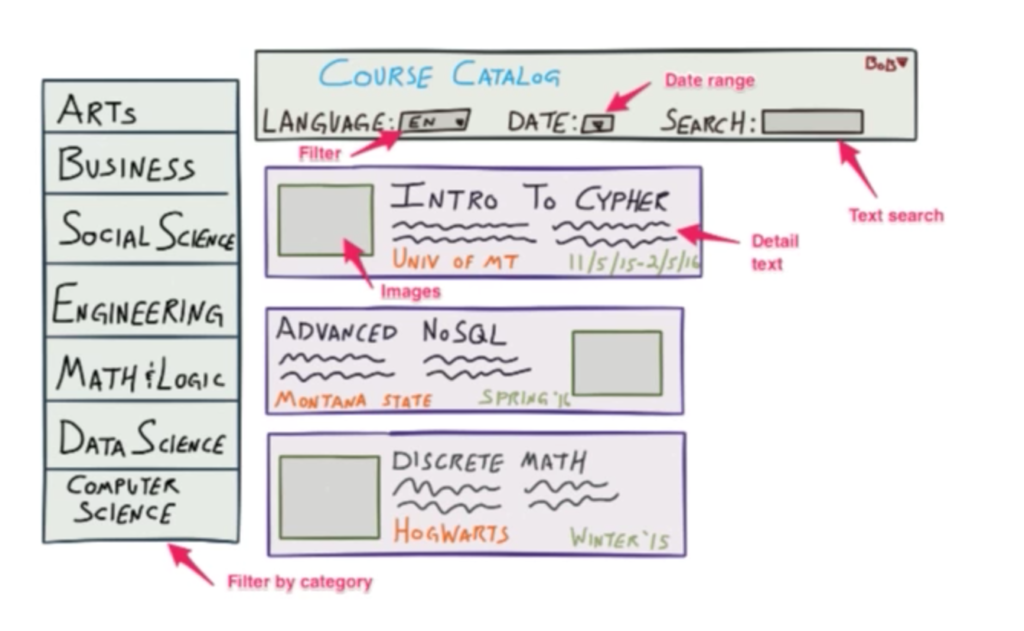 ARTS
BUSINESS
SOCIAL SCIENCE
ENGINEERING
MATH & LOGIC
DATA SCIENCE
COMPUTER
SCIENCE
Filter by category
COURSE CATALOG
BOB
Date range
LANGUAGE: EN DATE: SEARCH:
Filter
Text search
INTRO TO CYPHER
Detail
text
UNIV OF MT 11/5/15-2/5/16
Images
ADVANCED NOSQL
MONTANA STATE SPRING '16
DISCRETE MATH
HOGWARTS WINTER '15